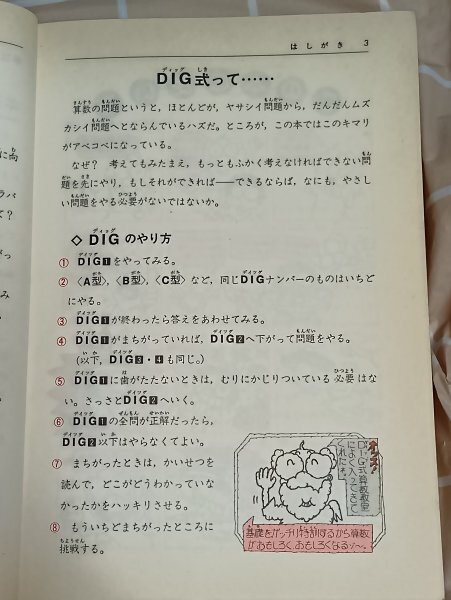 はしがき 3
DIG式って……
算数の問題というと，ほとんどが，ヤサシイ問題から，だんだんムズ
カシイ問題へとならんでいるハズだ。ところが，この本ではこのキマリ
がアベコベになっている。
なぜ？ 考えてもみたまえ，もっともふかく考えなければできない問
題を先にやり，もしそれができれば——できるならば，なにも，やさし
い問題をやる必要がないではないか。
◇DIGのやり方
① DIG1をやってみる。
② 〈A型〉，〈B型〉，〈C型〉など，同じDIGナンバーのものはいちど
にやる。
③ DIG1が終わったら答えをあわせてみる。
④ DIG1がまちがっていれば，DIG2へ下がって問題をやる。
(以下，DIG3・4も同じ。)
⑤ DIG1に歯がたたないときは，むりにかじりついている必要はな
い。さっさとDIG2へいく。
⑥ DIG1の全問が正解だったら，
DIG2以下はやらなくてよい。
⑦ まちがったときは，かいせつを
読んで，どこがどうわかっていな
かったかをハッキリさせる。
⑧ もういちどまちがったところに
挑戦する。
オッス！
DIG式算数教室
によくぞ入ってきて
くれたナ。
基礎をガッチリ特訓するから算数
がおもしろくおもしろくなるゾ〜。